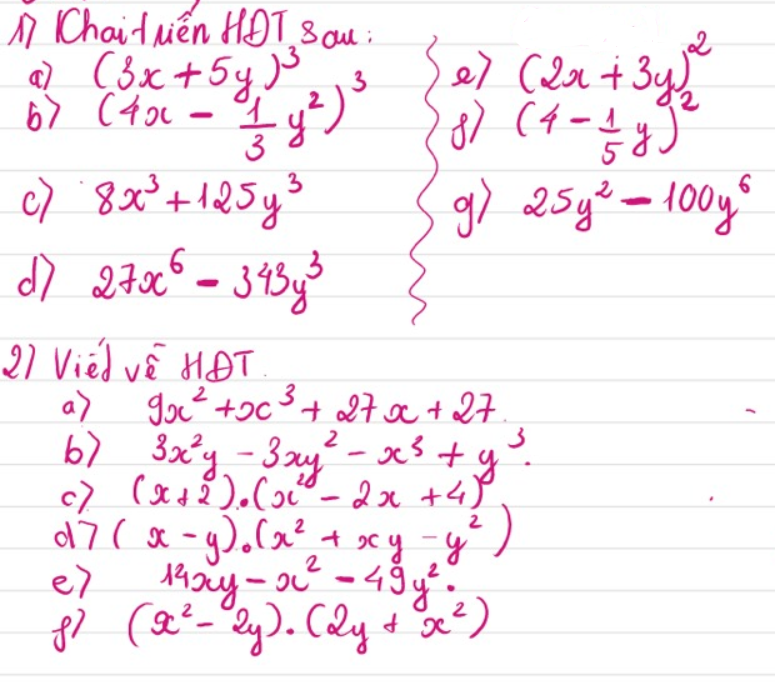 1) Khai triển HĐT sau:
a) (3x + 5y)³
b) (4x - 1/3 y²)³
c) 8x³ + 125y³
d) 27x⁶ - 343y³
e) (2x + 3y)²
f) (4 - 1/5 y)²
g) 25y² - 100y⁶
2) Viết về HĐT.
a) 9x² + x³ + 27x + 27.
b) 3x²y - 3xy² - x³ + y³.
c) (x + 2).(x² - 2x + 4)
d) (x - y).(x² + xy - y²)
e) 14xy - x² - 49y².
f) (x² - 2y).(2y + x²)